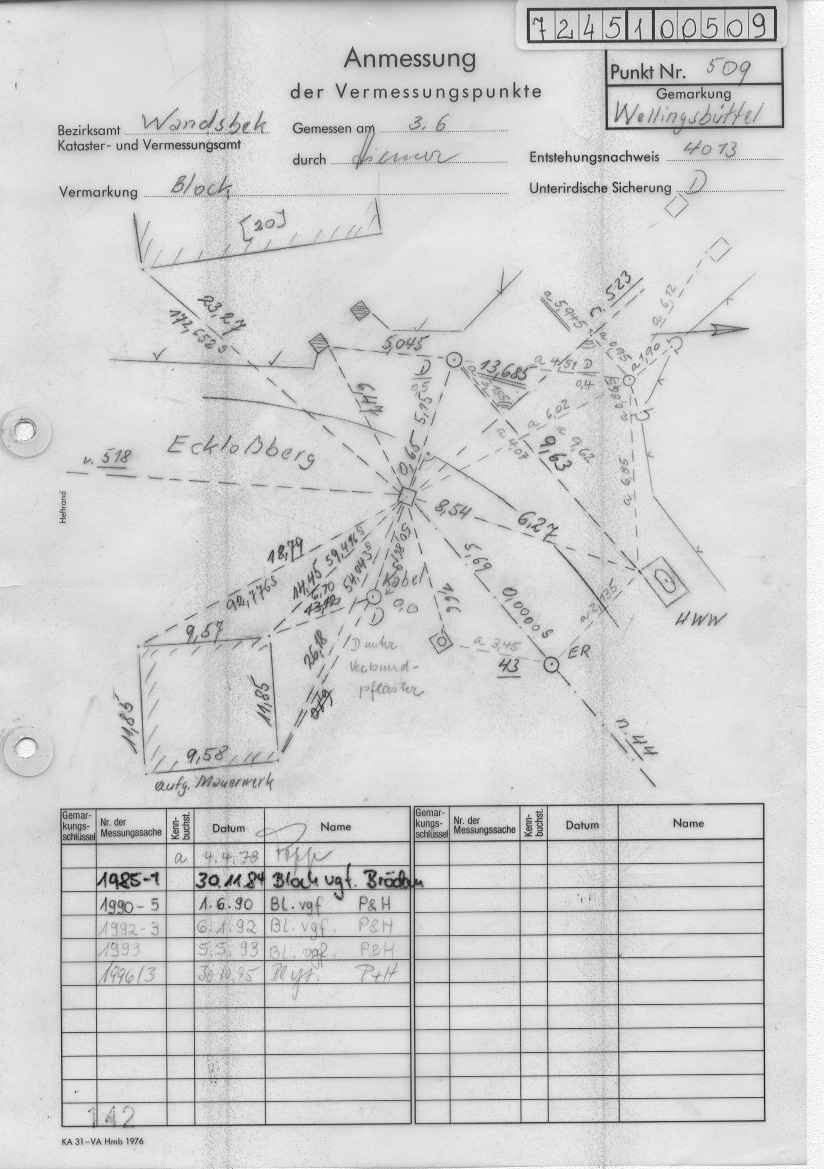 7 2 4 5 1 0 0 5 0 9
Anmessung
der Vermessungspunkte
Punkt Nr. 509
Gemarkung
Wellingsbüttel
Bezirksamt Wandsbek
Kataster- und Vermessungsamt
Gemessen am 3.6
durch
Entstehungsnachweis 4013
Vermarkung Block
Unterirdische Sicherung D
[20]
23,27
172,6520
523
a 5,945
a 6,12
a 0,95
a 1,90
5,045
13,685
a 4,51 D
0,4
D
0,5
5,75
6,47
a 6,02
a 9,62
a 4,07
9,63
a 6,85
0,65
Eckloßberg
v. 518
Heftrand
8,54
6,27
18,79
92,7765
14,45
6,70
13,12
Kabel
D 0,0
5,69
0,0000
1,66
a 2,135
HWW
9,57
D unter
Verbund-
pflaster
26,18
a 3,45
43
ER
11,85
11,85
9,58
aufg. Mauerwerk
n. 44
Gemar-
kungs-
schlüssel
Nr. der
Messungssache
Kenn-
buchst.
Datum
Name
Gemar-
kungs-
schlüssel
Nr. der
Messungssache
Kenn-
buchst.
Datum
Name
a 4.4.78 Topp
1985-1 30.11.84 Block vgf. Brödan
1990-5 1.6.90 Bl. vgf P&H
1992-3 6.1.92 Bl. vgf. P&H
1993 5.5.93 Bl. vgf. P&H
1996/3 30.10.95 Bl. vgf. P+H
142
KA 31–VA Hmb 1976